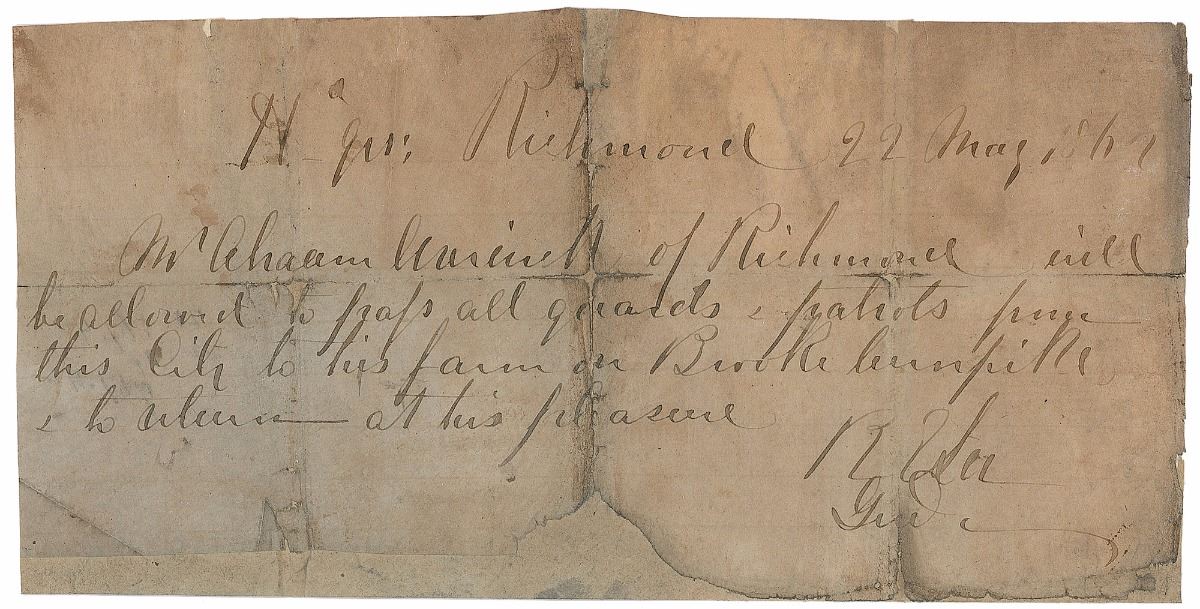 Hd Qrs: Richmond 22 May, 1862
Mr Abraam Warwick of Richmond will
be allowed to pass all guards & patrols from
this City to his farm on Brooke turnpike
& to return at his pleasure
R E Lee
Genl